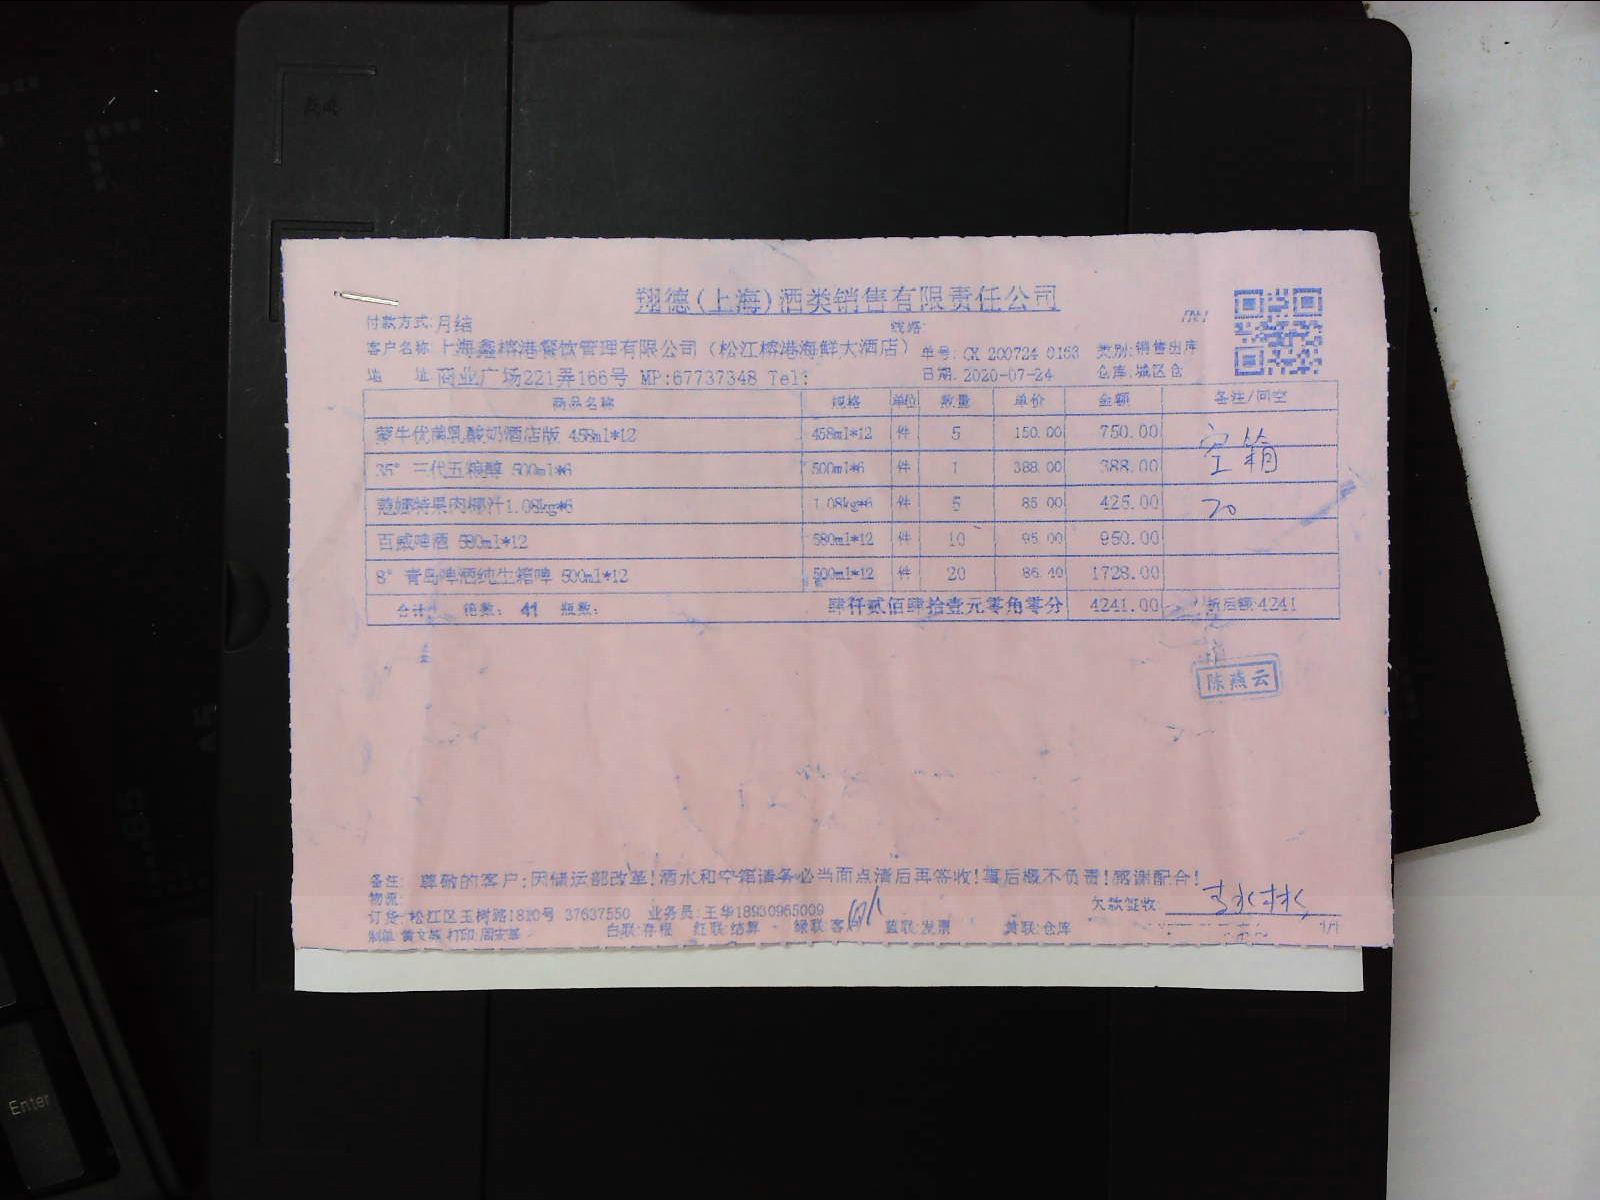 翔德(上海)酒类销售有限责任公司
付款方式:月结 线路:
客户名称 上海鑫榕港餐饮管理有限公司(松江榕港海鲜大酒店) 单号: CK 200724 0153 类别:销售出库
地 址 商业广场221弄166号 MP:67737348 Tel: 日期: 2020-07-24 仓库:城区仓
商品名称 规格 单位 数量 单价 金额 备注/回空
蒙牛优菌乳酸奶酒店版 458ml*12 458ml*12 件 5 150.00 750.00 空箱
35° 三代五粮醇 500ml*6 500ml*6 件 1 388.00 388.00
特果肉椰汁1.08kg*6 1.08kg*6 件 5 85.00 425.00 20
百威啤酒 580ml*12 580ml*12 件 10 95.00 950.00
8° 青岛啤酒纯生箱啤 500ml*12 500ml*12 件 20 86.40 1728.00
合计 箱数: 41 瓶数: 肆仟贰佰肆拾壹元零角零分 4241.00 折后额:4241
陈燕云
备注: 尊敬的客户:因储运部改革!酒水和空箱请务必当面点清后再签收!事后概不负责!感谢配合!
物流:
欠款签收:
订货:松江区玉树路1810号 37637550 业务员:王华18930965009
制单:黄文 打印:周宏 白联:存根 红联:结算 绿联:客 蓝联:发票 黄联:仓库 1/1